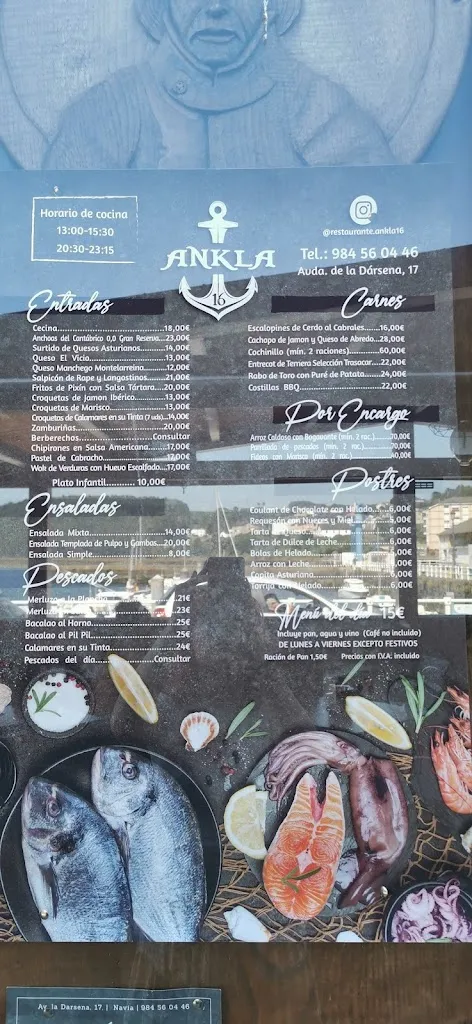 Horario de cocina
13:00-15:30
20:30-23:15
ANKLA
16
@restaurante.ankla16
Tel.: 984 56 04 46
Avda. de la Dársena, 17
Entradas
Cecina...18,00€
Anchoas del Cantábrico 0,0 Gran Reserva...23,00€
Surtido de Quesos Asturianos...14,00€
Queso El Vicio...13,00€
Queso Manchego Montelarreina...12,00€
Salpicón de Rape y Langostinos...21,00€
Fritos de Pixín con Salsa Tártara...20,00€
Croquetas de Jamon Ibérico...13,00€
Croquetas de Marisco...13,00€
Croquetas de Calamares en su Tinta (7 uds)...14,00€
Zamburiñas...20,00€
Berberechos...Consultar
Chipirones en Salsa Americana...17,00€
Pastel de Cabracho...17,00€
Wok de Verduras con Huevo Escalfado...17,00€
Plato Infantil...10,00€
Ensaladas
Ensalada Mixta...14,00€
Ensalada Templada de Pulpo y Gambas...20,00€
Ensalada Simple...8,00€
Pescados
Merluza a la Plancha...21€
Merluza...23€
Bacalao al Horno...25€
Bacalao al Pil Pil...25€
Calamares en su Tinta...24€
Pescados del día...Consultar
Carnes
Escalopines de Cerdo al Cabrales...16,00€
Cachopo de Jamon y Queso de Abredo...28,00€
Cochinillo (mín. 2 raciones)...60,00€
Entrecot de Ternera Selección Trasacar...22,00€
Rabo de Toro con Puré de Patata...24,00€
Costillas BBQ...22,00€
Por Encargo
Arroz Caldoso con Bogavante (mín. 2 rac.)...70,00€
Parrillada de pescados (mín. 2 rac.)...70,00€
Fideos con Marisco (mín. 2 rac.)...40,00€
Postres
Coulant de Chocolate con Helado...6,00€
Requesón con Nueces y Miel...5,00€
Tarta de Queso...6,00€
Tarta de Dulce de Leche...6,00€
Bolas de Helado...5,00€
Arroz con Leche...6,00€
Copita Asturiana...6,00€
Torrija con Helado...6,00€
Menú del día 15€
Incluye pan, agua y vino (Café no incluido)
DE LUNES A VIERNES EXCEPTO FESTIVOS
Ración de Pan 1,50€ Precios con I.V.A. incluido
Av. la Darsena, 17. | Navia | 984 56 04 46